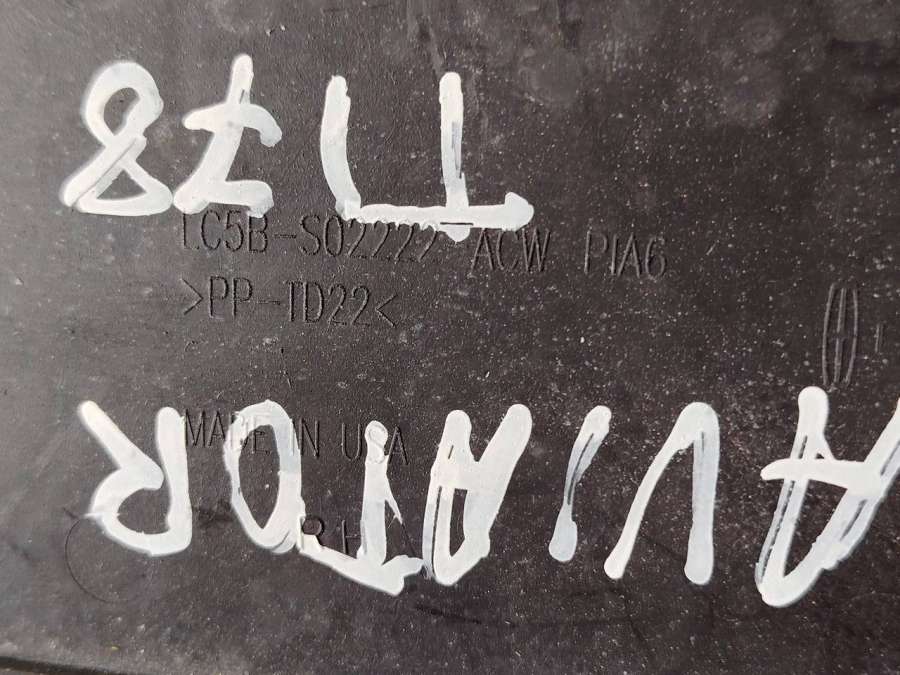 T178
LC5B-S02222-ACW PIA6
>PP-TD22<
MADE IN USA
AVIATOR
RH